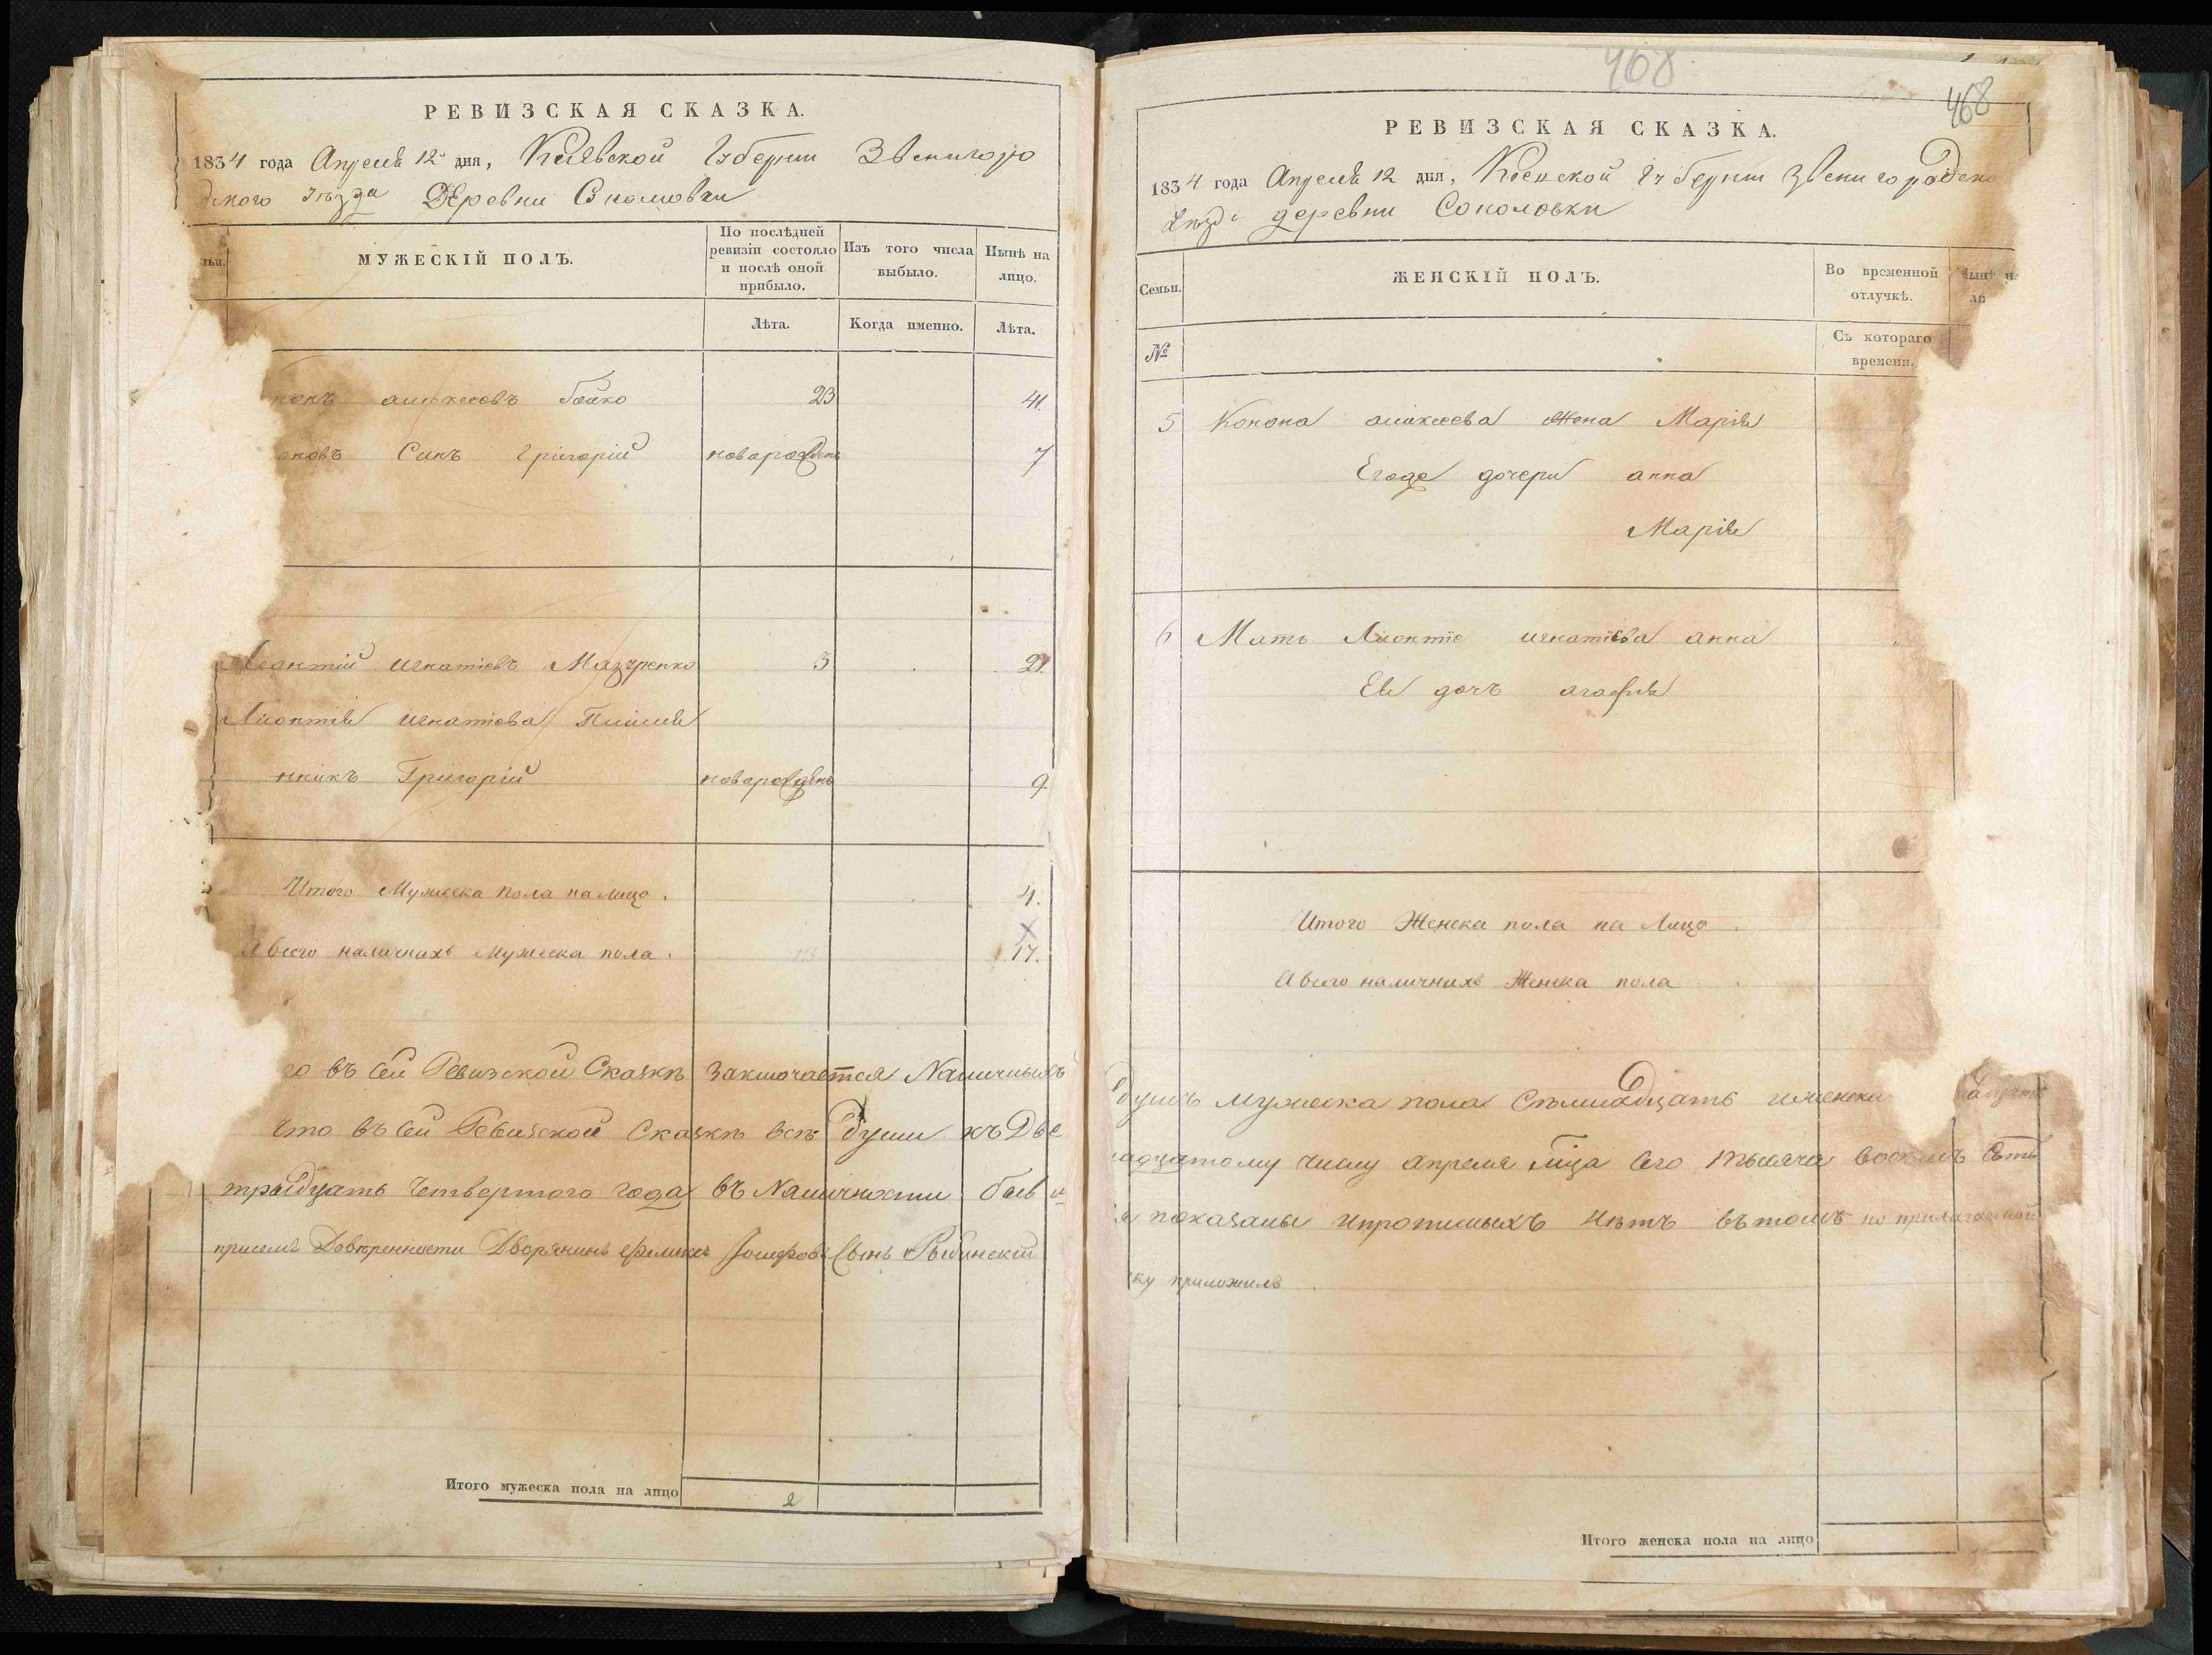 РЕВИЗСКАЯ СКАЗКА.
1834 года Апреля 12 дня, Киевской Губернии Звенигоро
дского уезда Деревни
МУЖЕСКІЙ ПОЛЪ.
По послѣдней ревизіи состояло и послѣ оной прибыло.
Изъ того числа выбыло.
Нынѣ на лицо.
Лѣта.
Когда именно.
Лѣта.
нонъ алексеевъ бойко 23 41.
оновъ Синъ Григорій новорожденъ 7
Леонтій игнатіевъ Мазуренко 3 21.
Лионтія игнатіева Племя
нникъ Григорій новорожденъ 9.
Итого Мужеска пола на лицо. 4.
А всего наличнихъ Мужеска пола. 13 17.
го въ сей Ревизской Сказкѣ заключается Наличныхъ
что въ сей Ревизской Сказкѣ всѣ души къ Две
тридцать четвертого года въ Наличности
присемъ Доверенности Дворянинъ Феликсъ Іосифовъ Сынъ Рыбинскій
Итого мужеска пола на лицо
2
468
468
РЕВИЗСКАЯ СКАЗКА.
1834 года Апреля 12 дня, Киевской Губернии Звенигородско
Уезда деревни Соколовки
Семьи.
ЖЕНСКІЙ ПОЛЪ.
Во временной отлучкѣ.
Нынѣ н
ли
№
Съ котораго времени.
5 Конона алексеева жена Марія
Егоже дочери анна
Марія
6 Мать Лионтіе игнатіева анна
Ея дочъ агафія
Итого Женска пола на Лицо.
А всего наличнихъ Женска пола.
душъ мужеска пола Сѣмнадцать иженска надцать
надцатому числу апреля мца сего тысяча восемь Сотъ
я показаны ипрописныхъ нѣтъ въ томъ по прилагаемой
ку приложилъ
Итого женска пола на лицо